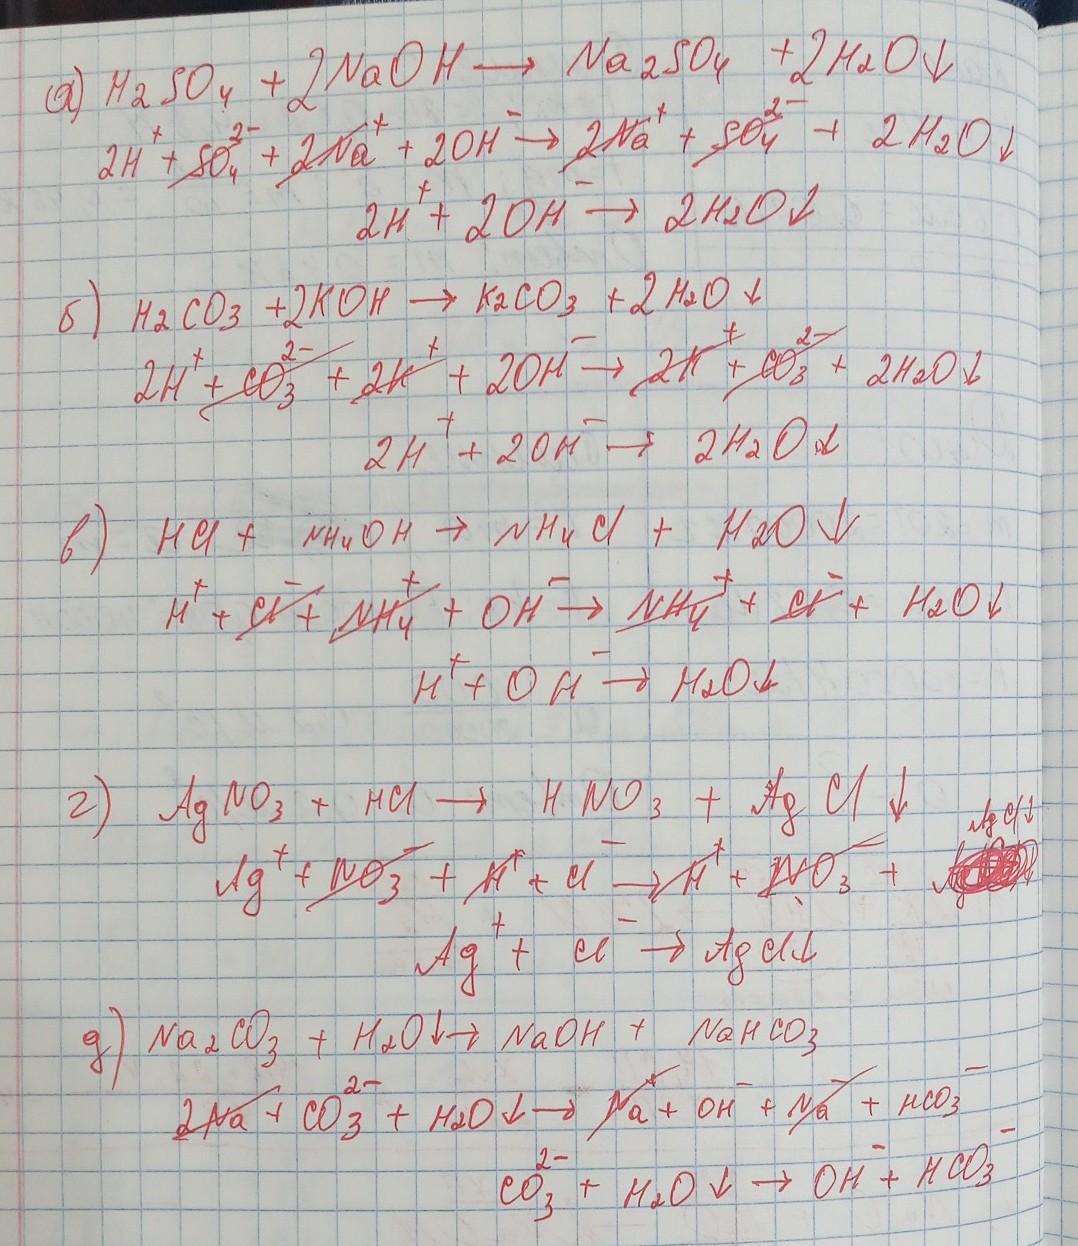 а) H₂SO₄ + 2NaOH → Na₂SO₄ + 2H₂O↓
2H⁺ + SO₄²⁻ + 2Na⁺ + 2OH⁻ → 2Na⁺ + SO₄²⁻ + 2H₂O↓
2H⁺ + 2OH⁻ → 2H₂O↓
б) H₂CO₃ + 2KOH → K₂CO₃ + 2H₂O↓
2H⁺ + CO₃²⁻ + 2K⁺ + 2OH⁻ → 2K⁺ + CO₃²⁻ + 2H₂O↓
2H⁺ + 2OH⁻ → 2H₂O↓
в) HCl + NH₄OH → NH₄Cl + H₂O↓
H⁺ + Cl⁻ + NH₄⁺ + OH⁻ → NH₄⁺ + Cl⁻ + H₂O↓
H⁺ + OH⁻ → H₂O↓
г) AgNO₃ + HCl → HNO₃ + AgCl↓
Ag⁺ + NO₃⁻ + H⁺ + Cl⁻ → H⁺ + NO₃⁻ + AgCl↓
Ag⁺ + Cl⁻ → AgCl↓
д) Na₂CO₃ + H₂O↓ → NaOH + NaHCO₃
2Na + CO₃²⁻ + H₂O↓ → Na⁺ + OH⁻ + Na⁻ + HCO₃⁻
CO₃²⁻ + H₂O↓ → OH⁻ + HCO₃⁻